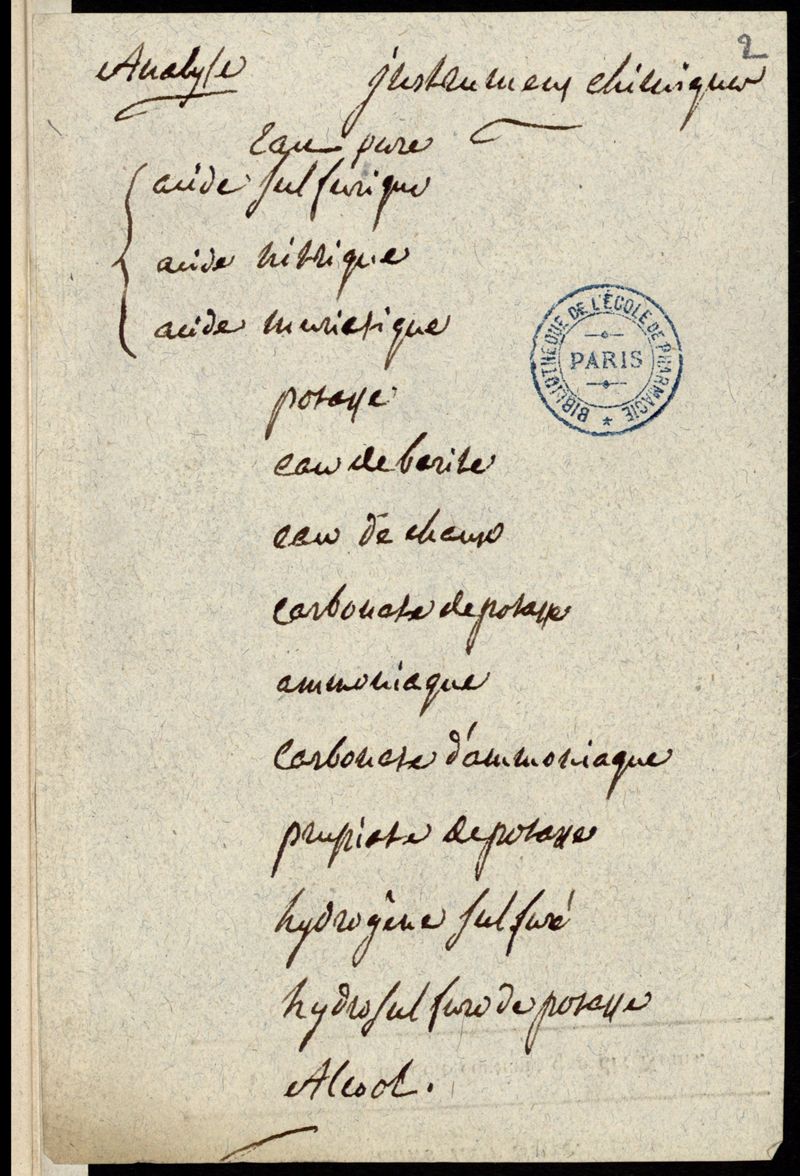 2
Analyse instrumens chimiques
Eau pure
acide sulfurique
acide nitrique
acide muriatique
potasse
eau de barite
eau de chaux
carbonate de potasse
ammoniaque
carbonate d'ammoniaque
prussiate de potasse
hydrogène sulfuré
hydrosulfure de potasse
Alcool.
BIBLIOTHÈQUE DE L'ÉCOLE DE PHARMACIE *
PARIS